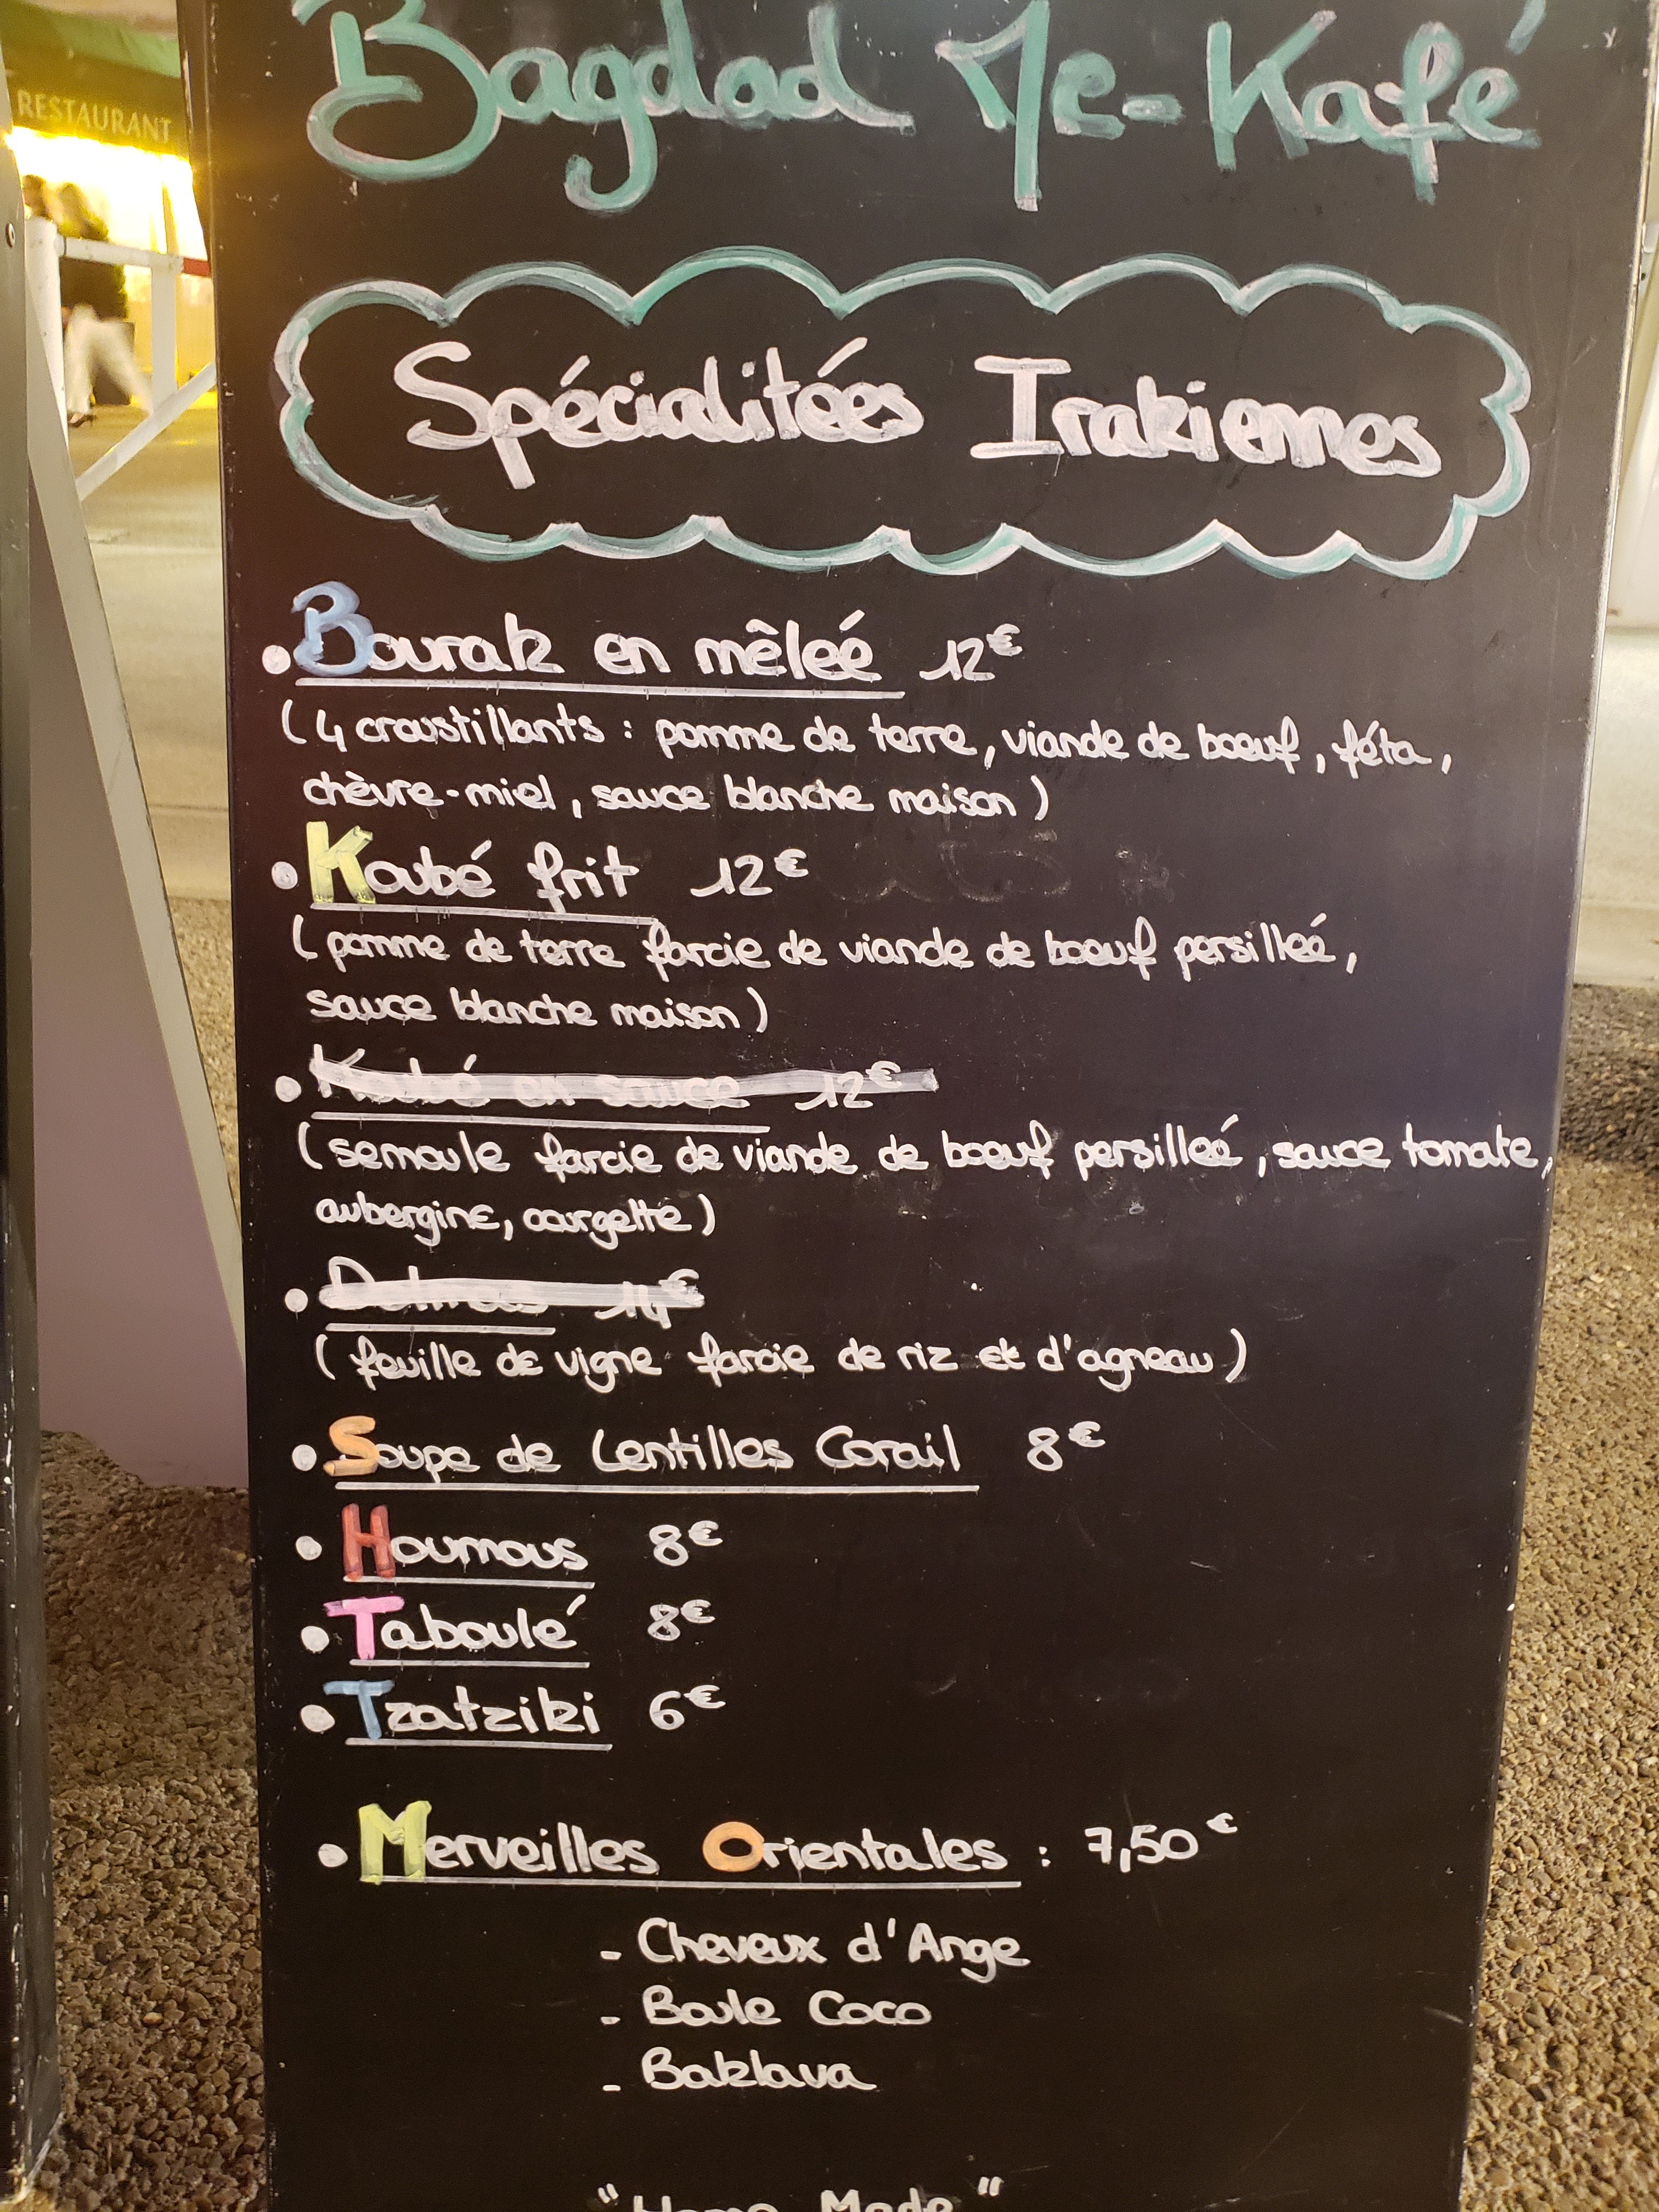 RESTAURANT
Bagdad Mc-Kafé
Spécialitées Irakiennes
• Bourak en mêleé 12€
( 4 croustillants : pomme de terre, viande de boeuf, féta,
chèvre-miel, sauce blanche maison )
• Koubé frit 12€
( pomme de terre farcie de viande de boeuf persilleé,
sauce blanche maison )
• Koubé en sauce 12€
( semoule farcie de viande de boeuf persilleé, sauce tomate,
aubergine, courgette )
• 14€
( feuille de vigne farcie de riz et d'agneau )
• Soupe de Lentilles Corail 8€
• Houmous 8€
• Taboulé 8€
• Tzatziki 6€
• Merveilles Orientales : 7,50€
- Cheveux d'Ange
- Boule Coco
- Baklava
"Home Made"